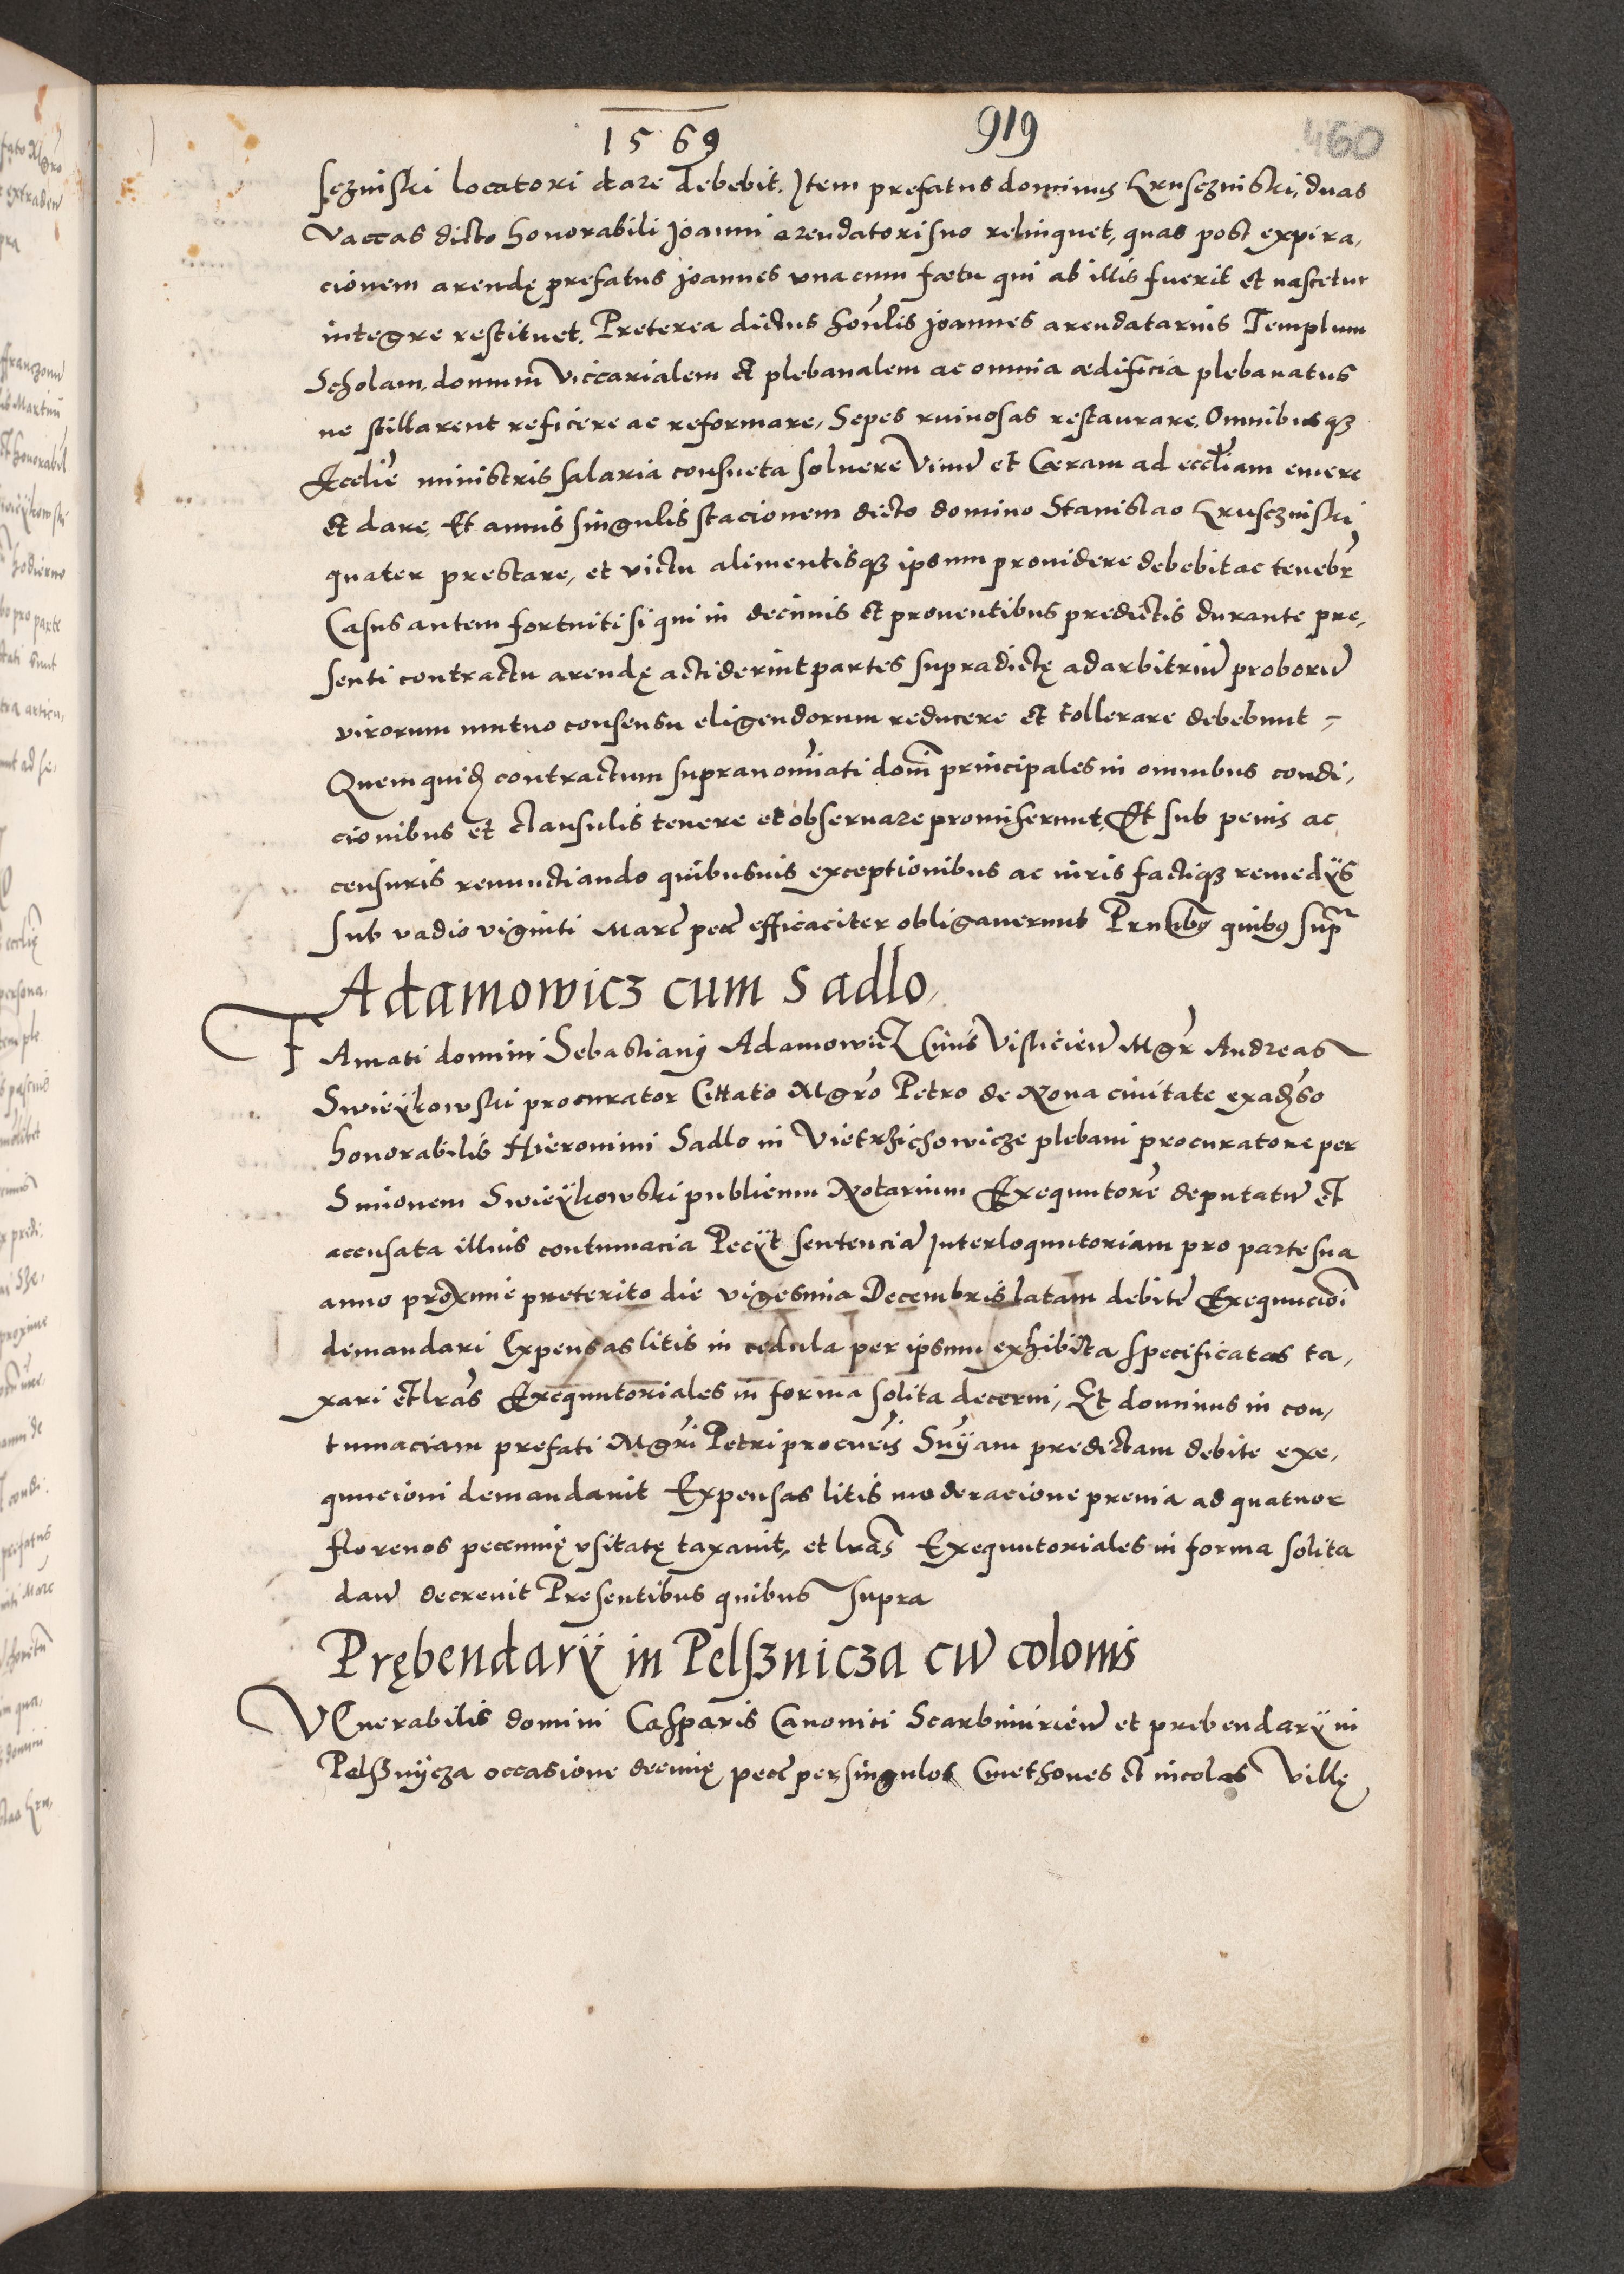 1569 919 460
sczinski locatori dare debebit. Item prefatus dominus Krusczinski, duas
Vaccas dicto honorabili Joanni arendatori suo relinquet, quas post expira,
cionem arendę prefatus Joannes vna cum fætu qui ab illis fuerit et nascetur
integre restituet. Preterea dictus honlis Joannes arendatarius Templum
Scholam, domum Viccarialem et plebanalem ac omnia ædificia plebanatus
ne stillarent reficere ac reformare, Sepes ruinosas restaurare. Omnibusqȝ
Ecclie ministris salaria consueta soluere Vinu et Cæram ad eccliam emere
et dare, Et annis singulis stacionem dicto domino Stanislao Krusczinski
quater prestare, et victu alimentisqȝ ipsum prouidere debebit ac tenebr
Casus autem fortuiti si qui in decimis et prouentibus predictis durante pre,
senti contractu arendę acciderint partes supradictę ad arbitriu proboru
virorum mutuo consensu eligendorum reducere et tollerare debebunt
Quemquid contractum supranominati domi principales in omnibus condi,
cionibus et clausulis tenere et obseruare promiserunt, Et sub penis ac
censuris renunctiando quibusuis exceptionibus ac iuris factiqȝ remedÿs
sub vadio viginti Marc pec efficaciter obligauerunt Prntibus quibus supra
Adamowicz cum Sadlo,
FAmati domini Sebastiani Adamowicz Ciuis Vislicien Mgr Andreas
Swieÿkowski procurator Cittato Mgro Petro de Noua ciuitate exaduerso
honorabilis Hieronimi Sadlo in Vietrzichowicze plebani procuratore per
Simonem Swieÿkowski publicum Notarium Exequutore deputatu et
accusata illius contumacia Peciÿt sentencia Interloquutoriam pro parte sua
anno proxime preterito die vigesima Decembris latam debite Exequucioi
demandari Expensas litis in cedula per ipsum exhibita specificatas ta,
xari et lras Exequutoriales in forma solita decerni, Et dominus in con,
tumaciam prefati Mgri Petri procuris Snÿam predictam debite exe,
quucioni demandauit Expensas litis moderacione preuia ad quatuor
florenos pecunię vsitatę taxauit, et lras Exequutoriales in forma solita
dan decreuit Presentibus quibus supra
Prębendarÿ in Pelsznicza cu colonis
VEnerabilis domini Casparis Canonici Scarbimirien et prebendarÿ in
Pelsznÿcza occasione decimę pec per singulos Cmethones et incolas Villę